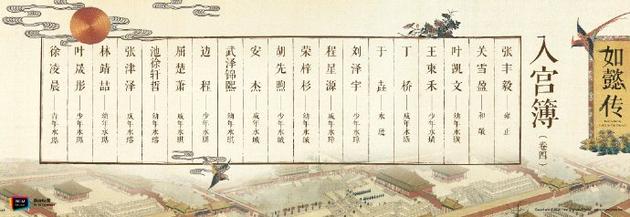 如懿传
入宫簿
(卷四)
张丰毅——雍正
关雪盈——和敬
叶凯文——幼年永璜
王東禾——少年永璜
丁桥——成年永璜
于垚——永琏
刘泽宇——少年永璋
程星源——成年永璋
荣梓杉——幼年永珹
胡先煦——少年永珹
安杰——成年永珹
武泽锦熙——幼年永琪
边程——少年永琪
屈楚萧——成年永琪
池徐轩哲——幼年
张津泽——成年
林靖喆——幼年
叶晟彤——少年
徐凌晨——青年